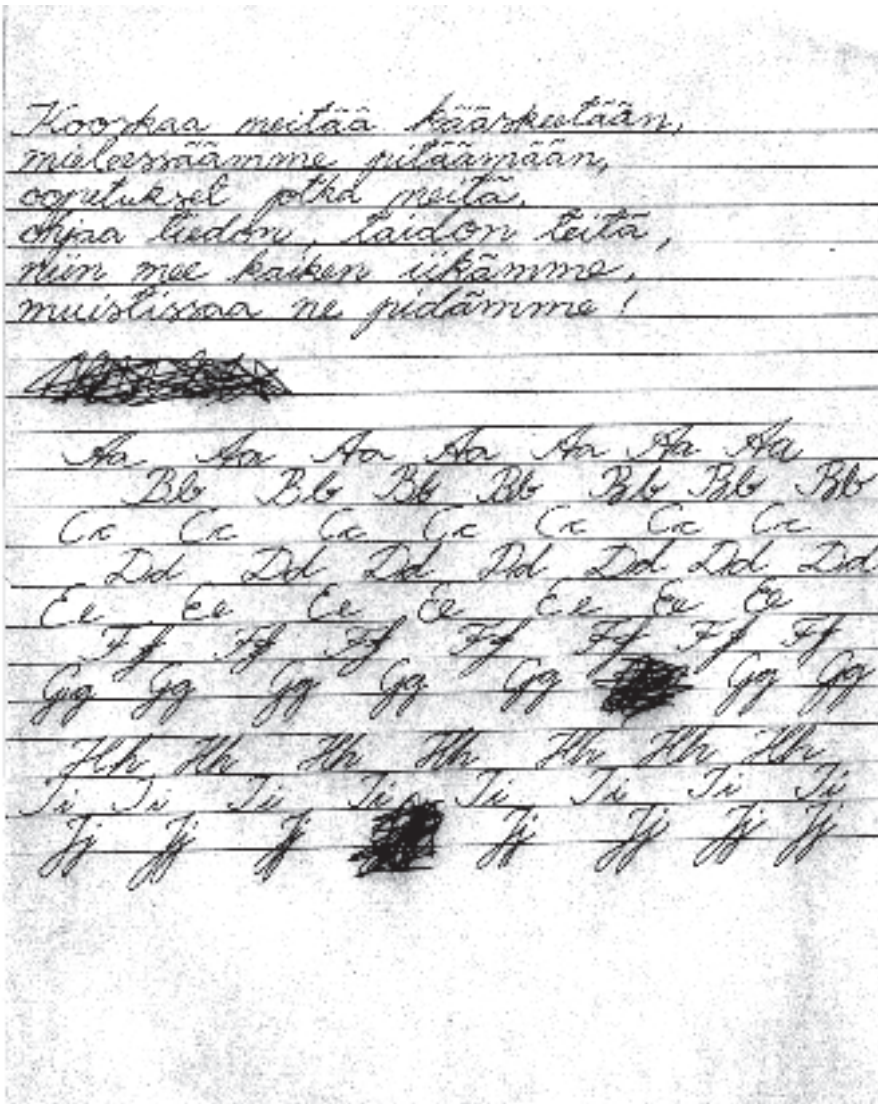 Kooskaa meitää kääsketään,
mieleessäämme pitäämään,
oopetukset jotka meitä,
ohjaa tiedon, taidon teitä,
niin mee kaiken iikämme,
muistissaa ne pidämme!
Aa Aa Aa Aa Aa Aa Aa
Bb Bb Bb Bb Bb Bb Bb
Cc Cc Cc Cc Cc Cc Cc
Dd Dd Dd Dd Dd Dd Dd
Ee Ee Ee Ee Ee Ee Ee
Ff Ff Ff Ff Ff Ff Ff
Gg Gg Gg Gg Gg Gg Gg
Hh Hh Hh Hh Hh Hh Hh
Ii Ii Ii Ii Ii Ii Ii Ii
Jj Jj Jj Jj Jj Jj Jj